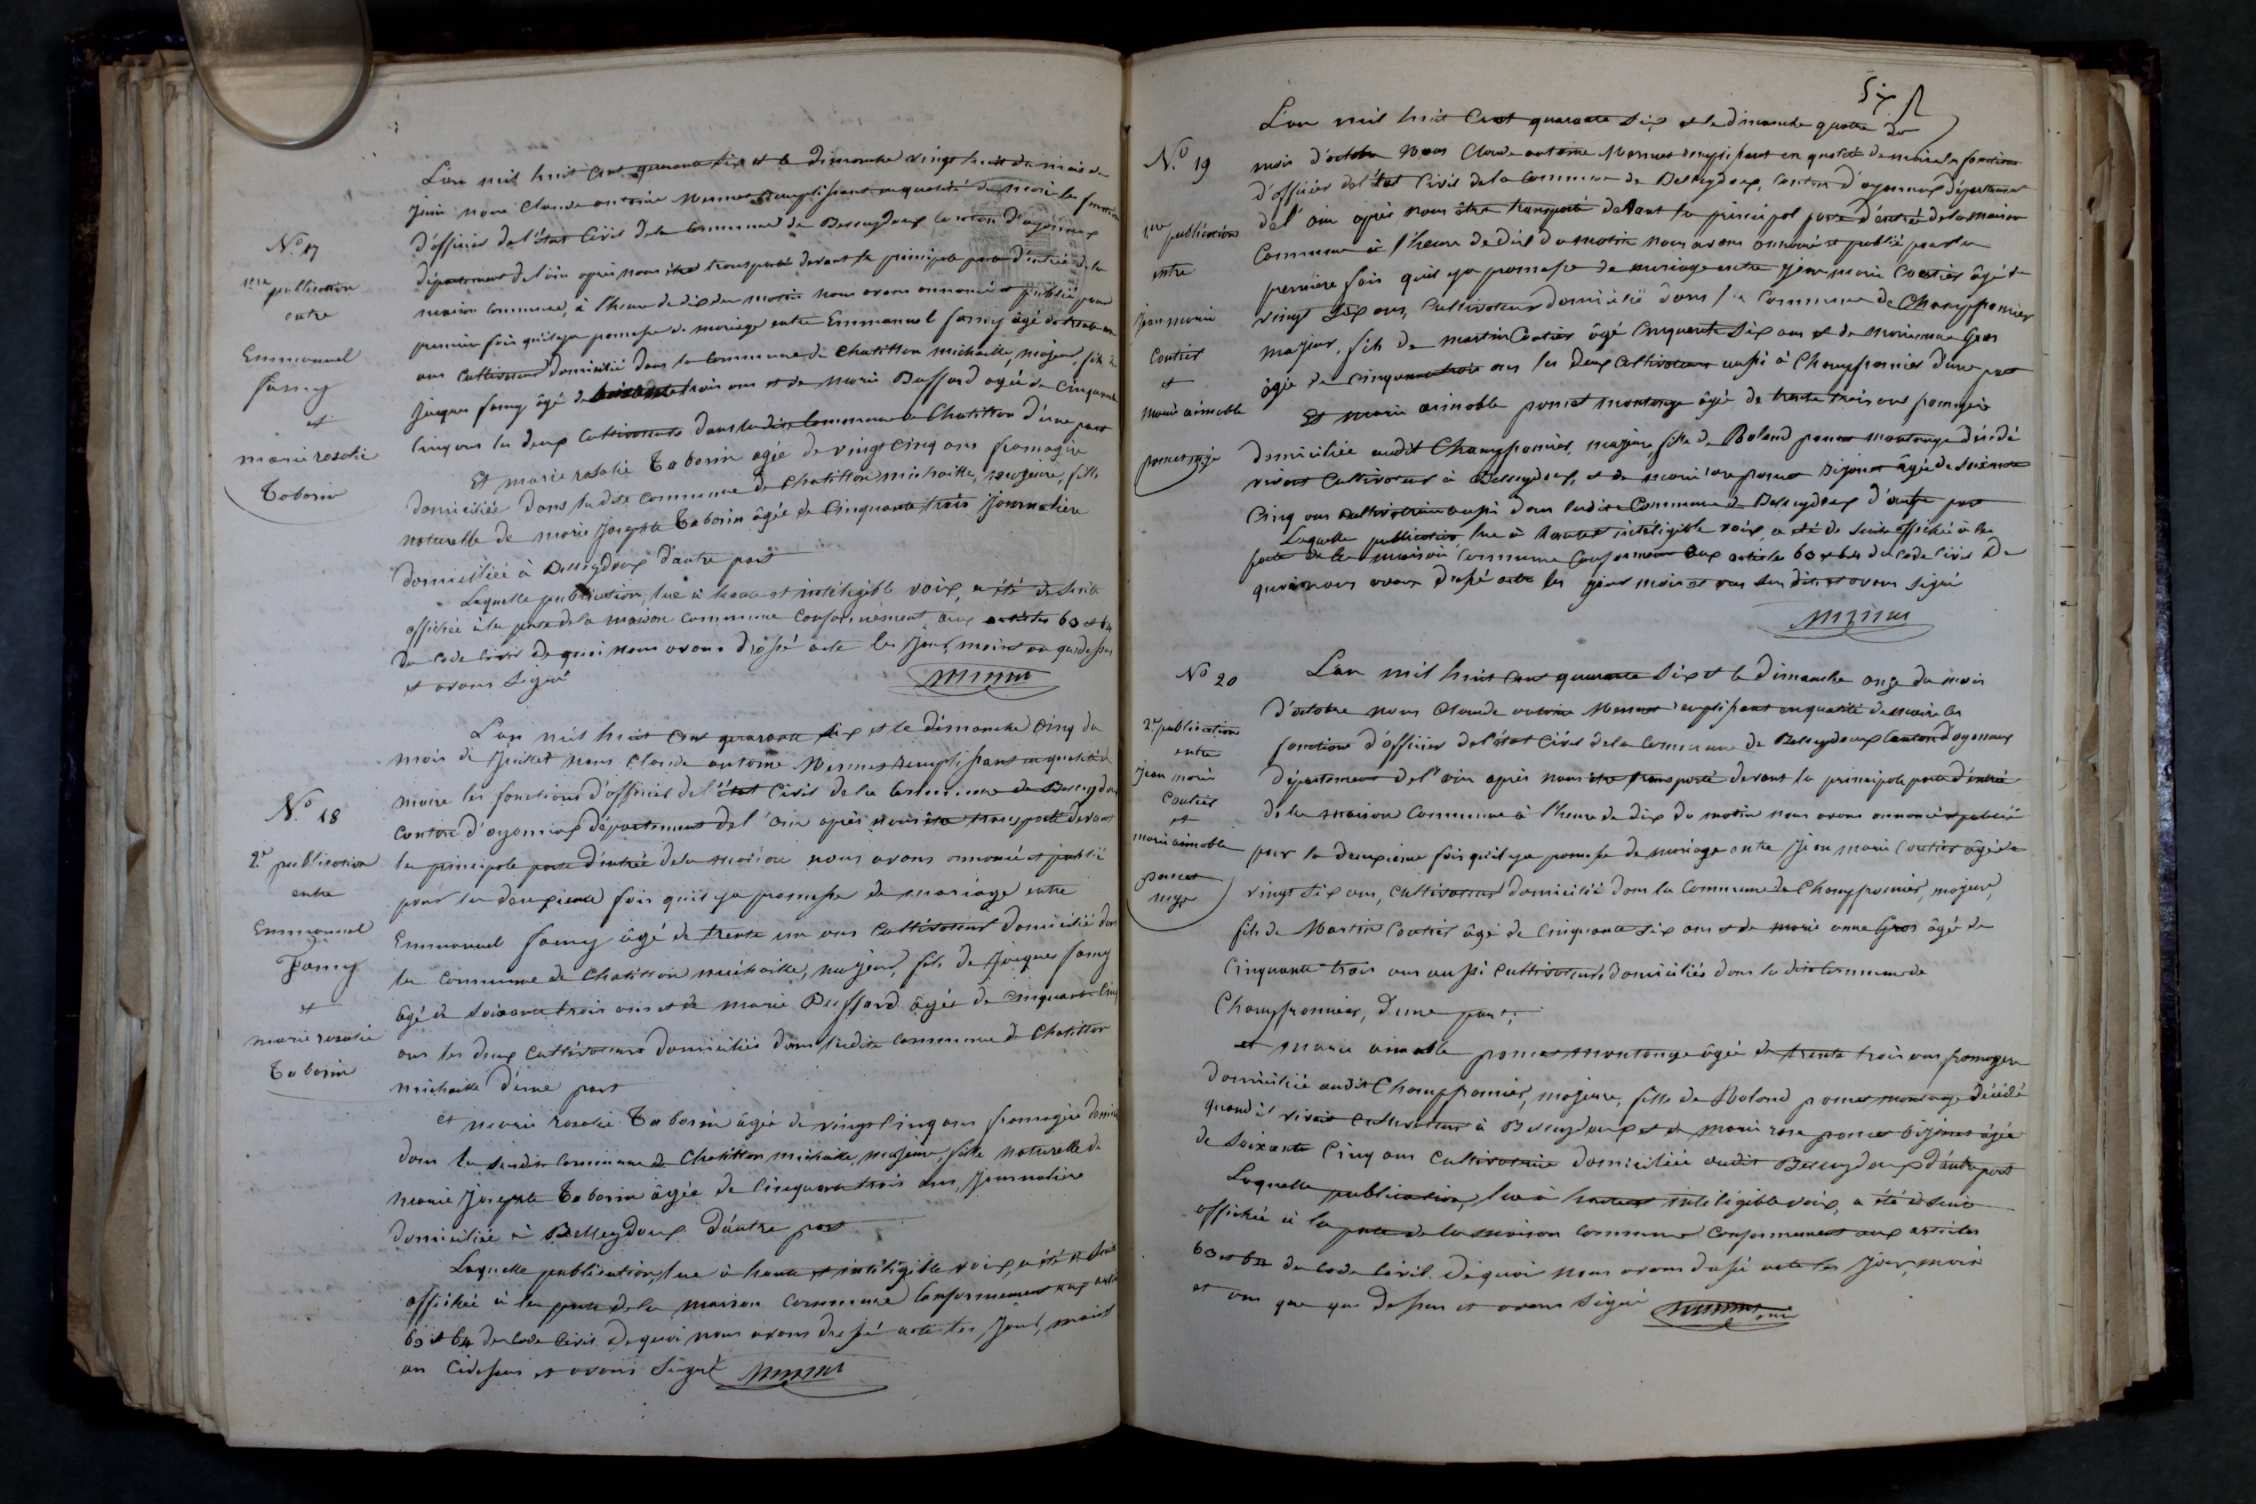 L'an mil huit Cent quarante six et le dimanche vingt huit du mois de
Juin nous Claude antoine Mermet remplissant en qualité de maire les fonctions
d'officier de l'état Civil de la Commune de Belleydoux Canton d'oyonnax
département de l'ain après nous être transporté devant la principale porte d'entrée de la
maison Commune, à l'heure de dix du matin nous avons annoncé et publié pour
premiere fois qu'il y a promesse de mariage entre Emmanuel famy âgé de trente un
ans Cultivateur domicilié dans la Commune de Chatillon michaille, majeur, fils de
Jacques famy âgé de soixante trois ans et de Marie Buffard agée de Cinquante
Cinq ans les deux Cultivateurs dans la dite Commune de Chatillon d'une part
Et marie rosalie Taborin agée de vingt Cinq ans fromagère
domiciliée dans la dite Commune de Chatillon michaille, majeure, fille
naturelle de marie Josephte Taborin âgée de Cinquante trois Journaliere
domiciliée à Belleydoux d'autre part
Laquelle publication, lue à haute et intéligible voix, a été de suite
affichée à la porte de la maison commune conformément aux articles 63 et 64
du code Civil de quoi nous avons dréssé acte les Jour, mois et an que dessus
et avons Signé Mermet
N.º 17
1ere publication
entre
Emmanuel
famy
et
marie rosalie
Taborin
L'an mil huit Cent quarante six et le dimanche Cinq du
mois de Juillet nous Claude antoine Mermet remplissant en qualité de
maire les fonctions d'officier de l'état Civil de la Commune de Belleydoux
Canton d'oyonnax département de l'ain après nous être transporté devant
la principale porte d'entrée de la maison nous avons annoncé et publié
pour la deuxieme fois qu'il y a promesse de mariage entre
Emmanuel famy âgé de trente un ans Cultivateur domicilié dans
la Commune de Chatillon michaille, majeur, fils de Jacques famy
âgé de soixante trois ans et de marie Buffard âgée de Cinquante Cinq
ans les deux Cultivateurs domiciliés dans ladite Commune de Chatillon
michaille d'une part
et marie rosalie Taborin âgée de vingt Cinq ans fromagère
dans la susdite Commune de Chatillon michaille, majeure, fille naturelle de
marie Josephte Taborin âgée de Cinquante trois ans, Journaliere
domiciliée à Belleydoux d'autre part
Laquelle publication, lue à haute et intéligible voix, a été de suite
affichée à la porte de la maison commune Conformement aux articles
63 et 64 du Code Civil de quoi nous avons dressé acte les Jour, mois et
an Cidessus et avons Signé Mermet
N.º 18
2.e publication
entre
Emmanuel
Famy
et
marie rosalie
Taborin
Six
L'an mil huit Cent quarante Six et le dimanche quatre du
mois d'octobre nous Claude antoine Mermet remplissant en qualité de maire les fonctions
d'officier de l'état Civil de la Commune de Belleydoux, Canton d'oyonnax département
de l'ain après nous être transporté devant la principal porte d'entrée de la maison
Commune à l'heure de dix du matin nous avons annoncé et publié pour la
premiere fois qu'il y a promesse de mariage entre Jean marie Coutier âgé de
vingt Six ans, Cultivateur domicilié dans la Commune de Champfromier
majeur, fils de martin Coutier âgé Cinquante Six ans et de marie anne Gros
âgée de cinquante trois ans les deux Cultivateurs aussi à Champfromier d'une part
Et marie aimable poncet montange âgée de trente trois ans fromagère
domiciliée audit Champfromier, majeure, fille de Roland poncet montange décédé
vivant Cultivateur à Belleydoux, et de marie rose poncet bijonet âgée de soixante
Cinq ans cultivatrice aussi dans ladite Commune de Belleydoux d'autre part
Laquelle publication lue à haute et intéligible voix, a été de suite affichée à la
porte de la maison Commune Conformément aux articles 63 et 64 du Code Civil De
quoi nous avons dressé acte les jour mois et an sus dits et avons signé
Mermet
N.º 19
1.ere publication
entre
Jean marie
Coutier
et
marie aimable
poncet
L'an mil huit Cent quarante Six et le dimanche onze du mois
d'octobre nous Claude antoine Mermet remplissant en qualité de maire les
fonctions d'officier de l'état Civil de la Commune de Belleydoux Canton d'oyonnax
département de l'ain après nous être transporté devant la principale porte d'entrée
de la maison Commune à l'heure de dix du matin nous avons annoncé et publié
pour la deuxieme fois qu'il y a promesse de mariage entre Jean marie Coutier âgé de
vingt Six ans, Cultivateur domicilié dans la Commune de Champfromier, majeur,
fils de Martin Coutier âgé de Cinquante Six ans et de marie anne Gros âgée de
Cinquante trois ans aussi Cultivateurs domiciliés dans la dite Commune de
Champfromier, d'une part,
et marie aimable poncet montange âgée de trente trois ans fromagère
domiciliée audit Champfromier, majeure, fille de Roland poncet montange décédé
quand il vivait Cultivateur à Belleydoux et de marie rose poncet bijonet âgée
de Soixante Cinq ans Cultivatrice domiciliée audit Belleydoux d'autre part
Laquelle publication, lue à haute et intéligible voix, a été de suite
affichée à la porte de la maison commune Conformement aux articles
63 et 64 du Code Civil. De quoi nous avons dressé acte les Jour, mois
et an que que dessus et avons signé Mermet
Nº 20
2.e publication
entre
Jean marie
Coutier
et
marie aimable
poncet